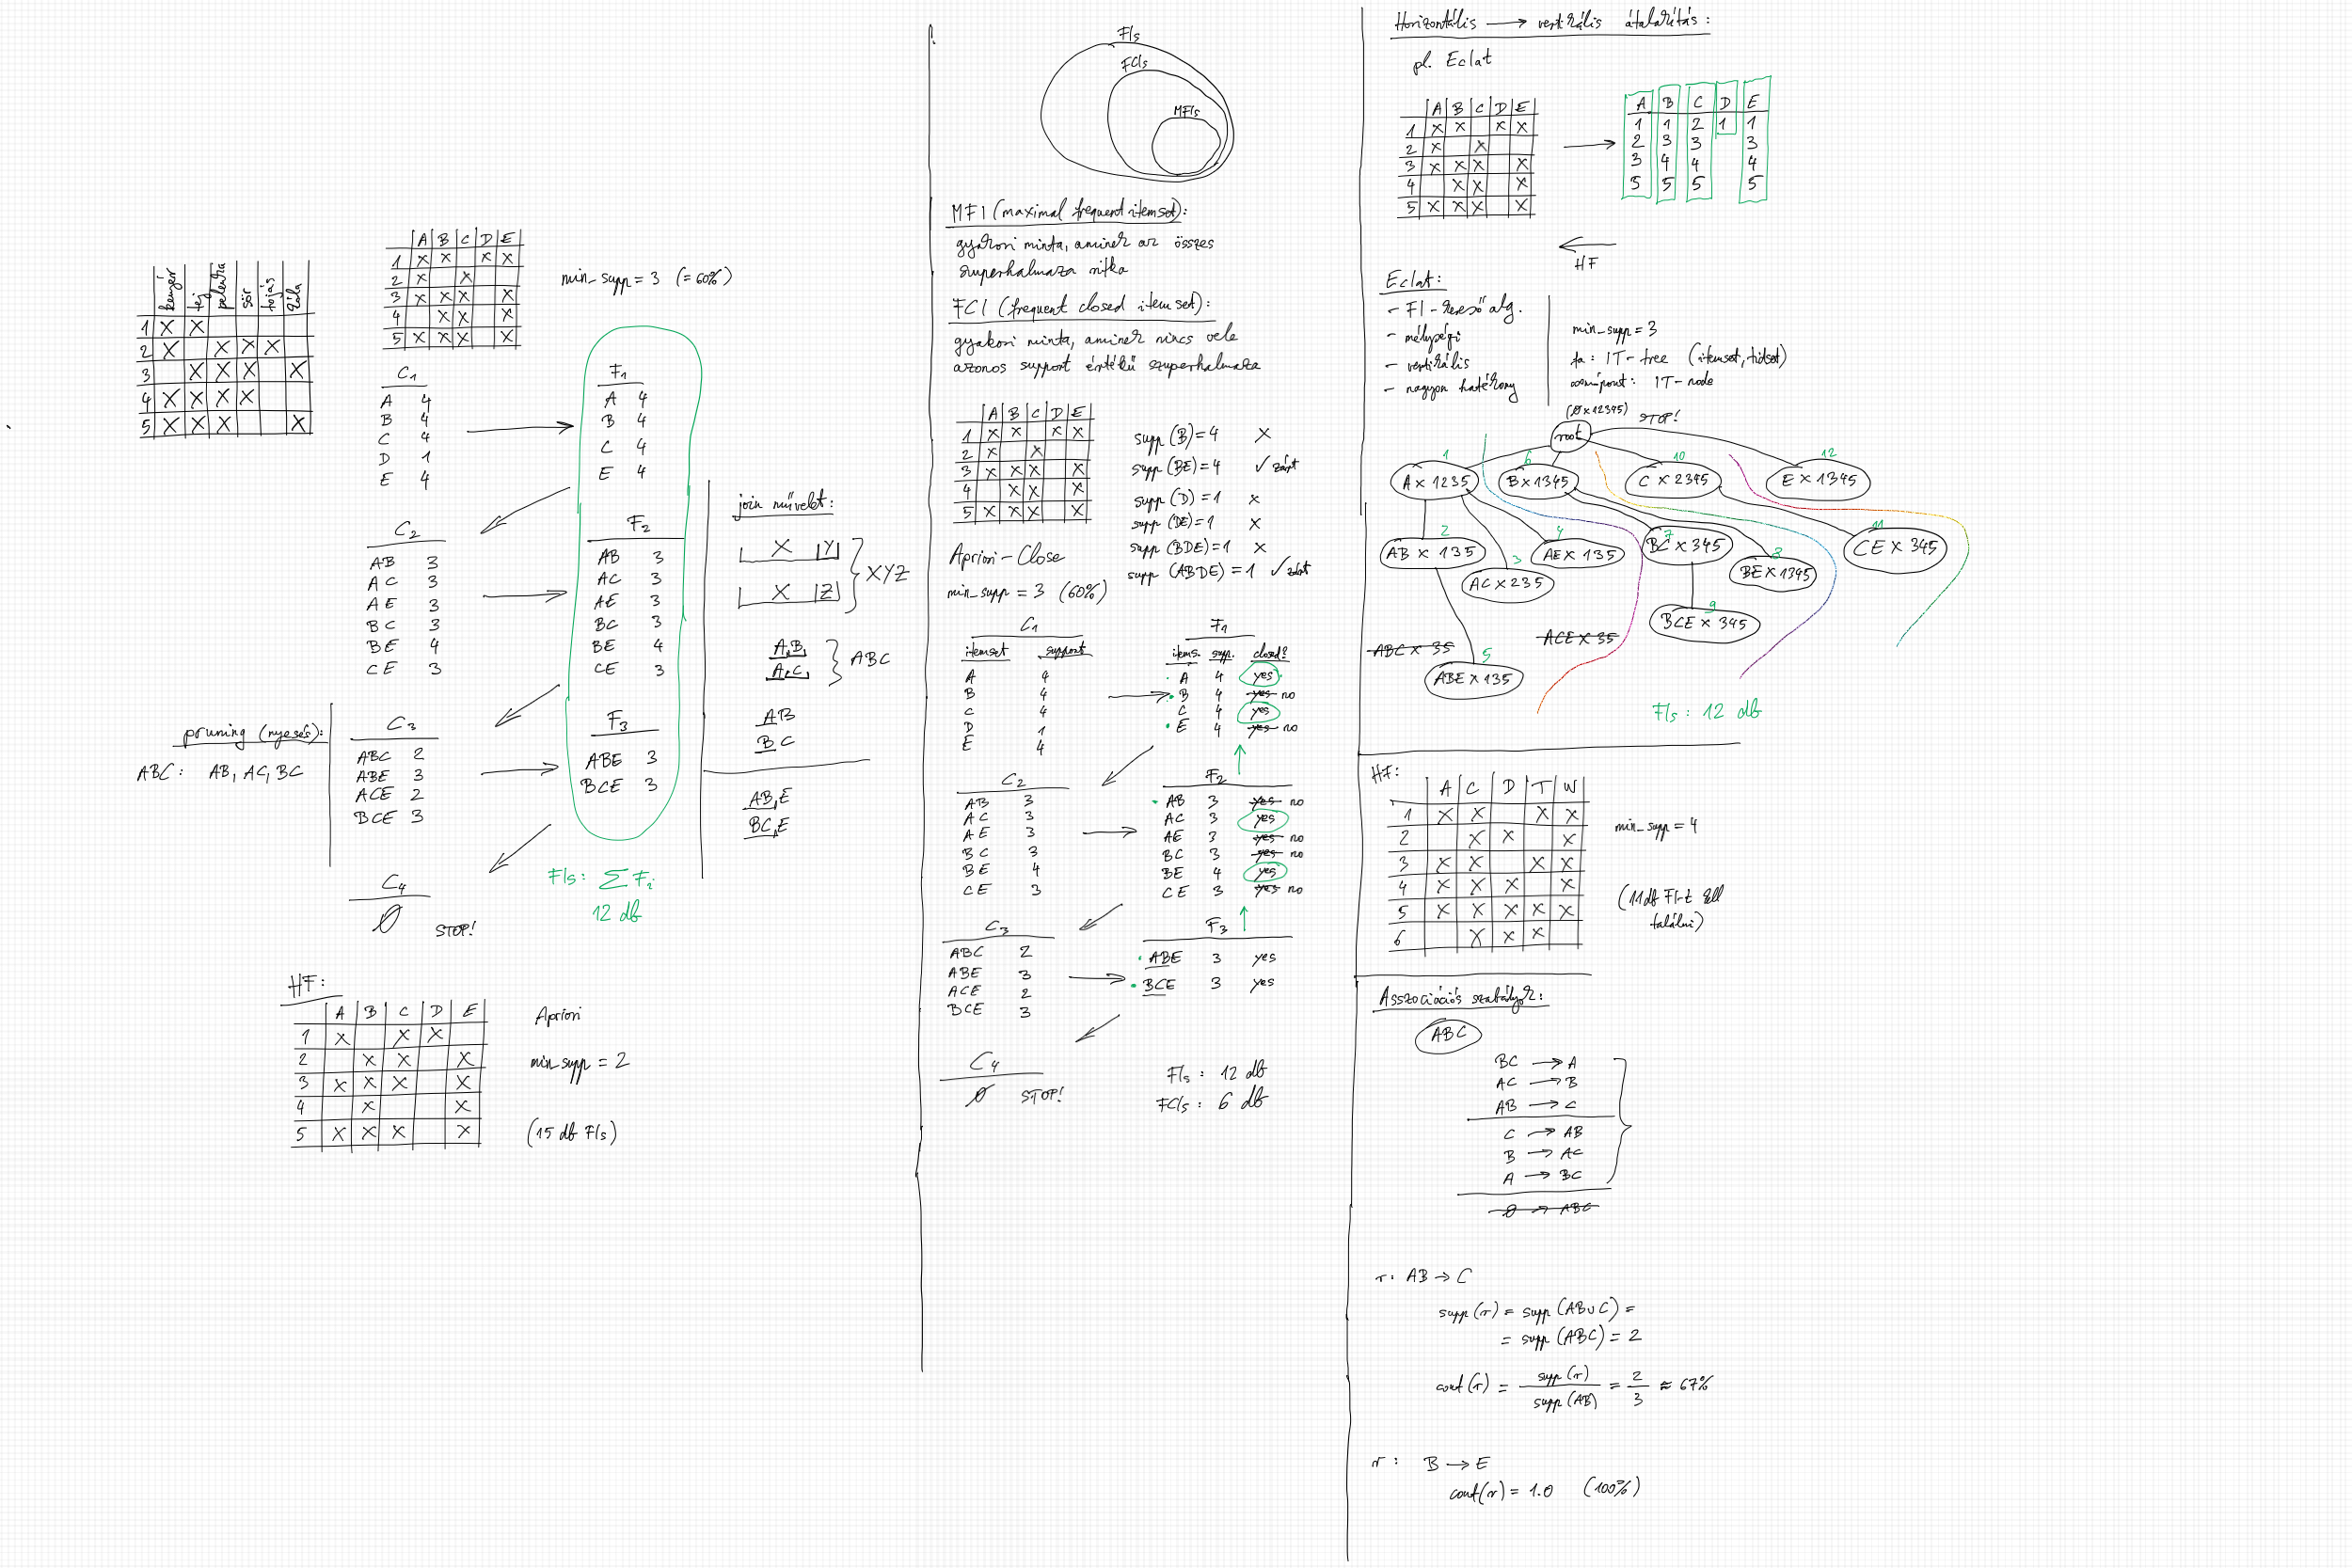 kenyér tej pelenka sör tojás kóla
1 X X
2 X X X X
3 X X X X
4 X X X X
5 X X X X
A B C D E
1 X X X X
2 X X
3 X X X X
4 X X X
5 X X X X
min_supp = 3 (= 60%)
C1
A 4
B 4
C 4
D 1
E 4
F1
A 4
B 4
C 4
E 4
C2
AB 3
AC 3
AE 3
BC 3
BE 4
CE 3
F2
AB 3
AC 3
AE 3
BC 3
BE 4
CE 3
pruning (nyesés):
ABC: AB, AC, BC
C3
ABC 2
ABE 3
ACE 2
BCE 3
F3
ABE 3
BCE 3
C4
Ø STOP!
FIs: ∑ Fi
12 db
join művelet:
X Y
X Z
XYZ
A,B,
A,C,
ABC
AB
BC
AB,E
BC,E
HF:
A B C D E
1 X X X
2 X X X
3 X X X X
4 X X
5 X X X X
Apriori
min_supp = 2
(15 db FIs)
FIs
FCIs
MFIs
MFI (maximal frequent itemset):
gyakori minta, aminek az összes
szuperhalmaza ritka
FCI (frequent closed itemset):
gyakori minta, aminek nincs vele
azonos support értékű szuperhalmaza
A B C D E
1 X X X X
2 X X
3 X X X X
4 X X X
5 X X X X
supp (B) = 4 X
supp (BE) = 4 ✓ zárt
supp (D) = 1 X
supp (DE) = 1 X
supp (BDE) = 1 X
supp (ABDE) = 1 ✓ zárt
Apriori-Close
min_supp = 3 (60%)
C1
itemset support
A 4
B 4
C 4
D 1
E 4
F1
items. supp. closed?
A 4 yes
B 4 yes no
C 4 yes
E 4 yes no
C2
AB 3
AC 3
AE 3
BC 3
BE 4
CE 3
F2
AB 3 yes no
AC 3 yes
AE 3 yes no
BC 3 yes no
BE 4 yes
CE 3 yes no
C3
ABC 2
ABE 3
ACE 2
BCE 3
F3
ABE 3 yes
BCE 3 yes
C4
Ø STOP!
FIs: 12 db
FCIs: 6 db
Horizontális → vertikális átalakítás:
pl. Eclat
A B C D E
1 X X X X
2 X X
3 X X X X
4 X X X
5 X X X X
A B C D E
1 1 2 1 1
2 3 3 3
3 4 4 4
5 5 5 5
← HF
Eclat:
- FI-kereső alg.
- mélységi
- vertikális
- nagyon hatékony
min_supp = 3
fa: IT-tree (itemset, tidset)
csomópont: IT-node
(Ø x 12345) STOP!
root
1 6 10 12
A x 1235 B x 1345 C x 2345 E x 1345
2 3 4 7 8 11
AB x 135 AC x 235 AE x 135 BC x 345 BE x 1345 CE x 345
9
BCE x 345
ABC x 35 ACE x 35
5
ABE x 135
FIs: 12 db
HF:
A C D T W
1 X X X X
2 X X X
3 X X X X
4 X X X X
5 X X X X X
6 X X X
min_supp = 4
(11 db FI-t kell
találni)
Asszociációs szabályok:
ABC
BC → A
AC → B
AB → C
C → AB
B → AC
A → BC
Ø → ABC
r: AB → C
supp (r) = supp (AB∪C) =
= supp (ABC) = 2
conf (r) = supp (r) / supp (AB) = 2 / 3 ≈ 67%
r: B → E
conf (r) = 1.0 (100%)